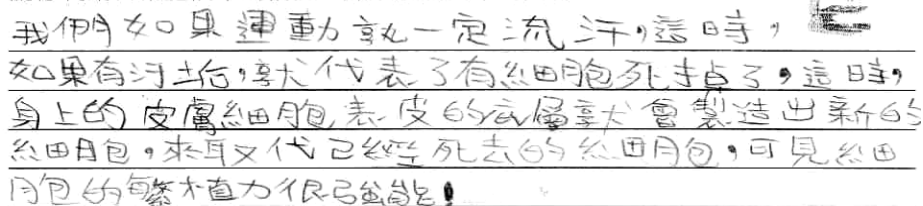 我們如果運動就一定流汗,這時,
如果有汙垢,就代表了有細胞死掉了,這時,
身上的皮膚細胞表皮的底層就會製造出新的
細胞,來取代已經死去的細胞,可見細
胞的繁殖力很強能!